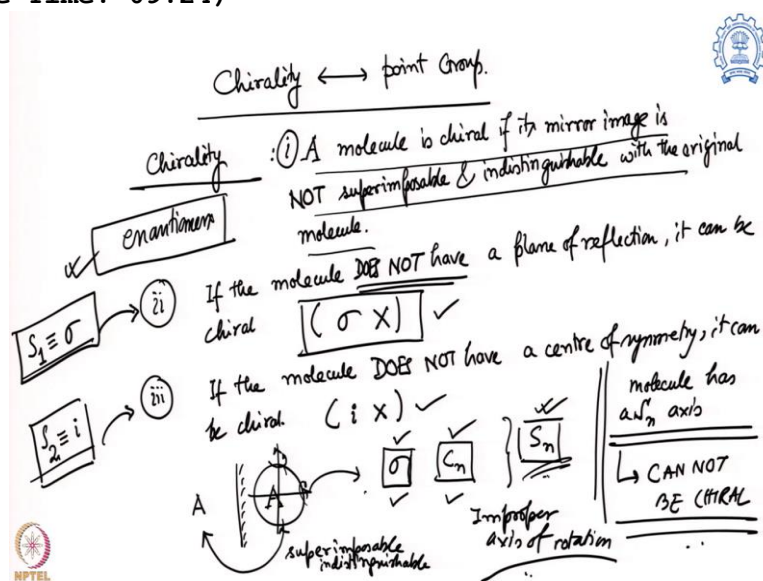 Chirality ⟷ point Group.
Chirality : (i) A molecule is chiral if its mirror image is
NOT superimposable & indistinguishable with the original
molecule.
enantiomers
S₁ ≡ σ
(ii) If the molecule DOES NOT have a plane of reflection, it can be
chiral (σ X) ✓
S₂ ≡ i
(iii) If the molecule DOES NOT have a centre of symmetry, it can
be chiral. (i X) ✓
A A
σ Cₙ } Sₙ
superimposable
indistinguishable
Improper
axis of rotation
molecule has
a Sₙ axis
↳ CAN NOT
BE CHIRAL
NPTEL